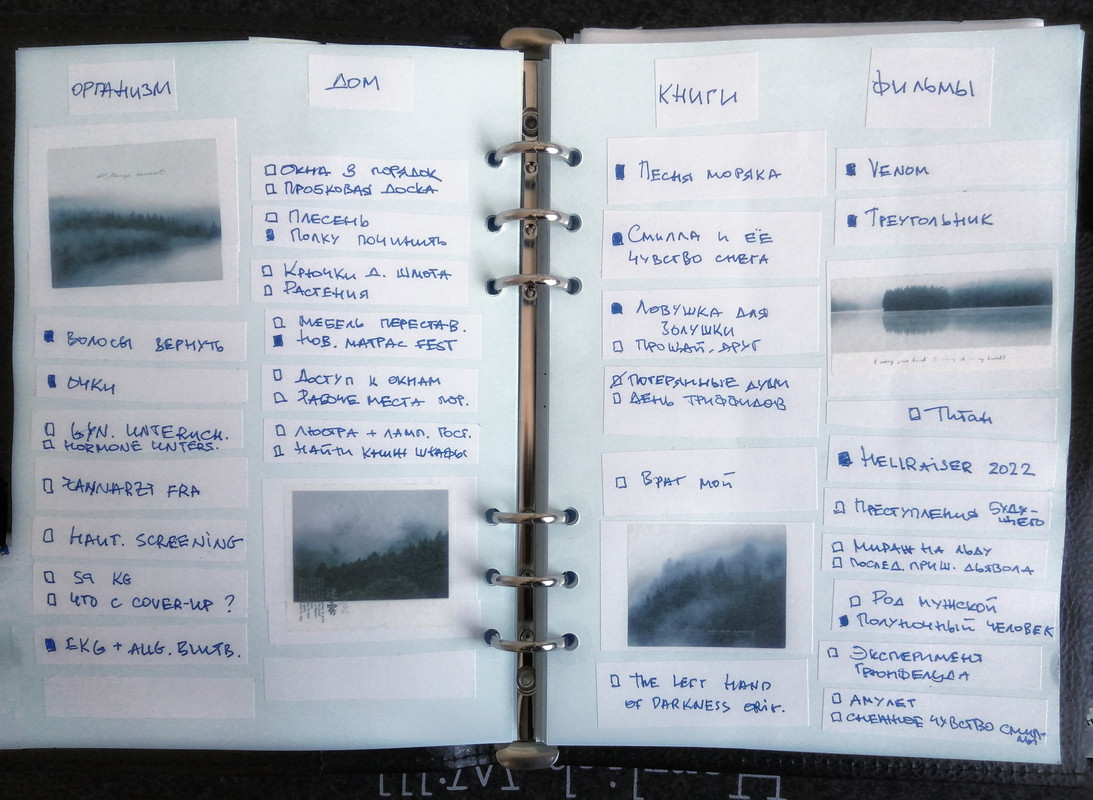 ОРГАНИЗМ
ВОЛОСЫ ВЕРНУТЬ
ОЧКИ
GYN. UNTERUCH.
HORMONE UNTERS.
ZAHNARZT FRA
HAUT. SCREENING
59 KG
ЧТО С COVER-UP ?
EKG + ALLG. BLUTB.
ДОМ
ОКНА В ПОРЯДОК
ПРОБКОВАЯ ДОСКА
ПЛЕСЕНЬ
ПОЛКУ ПОЧИНИТЬ
КРЮЧКИ Д. ШМОТА
РАСТЕНИЯ
МЕБЕЛЬ ПЕРЕСТАВ.
НОВ. МАТРАС FEST
ДОСТУП К ОКНАМ
РАБОЧЕ МЕСТА ПОР.
ЛЮСТРА + ЛАМП. ГОСТ.
НАЙТИ КНИЖ ШКАФЫ
КНИГИ
ПЕСНЯ МОРЯКА
СМИЛЛА И ЕЁ
ЧУВСТВО СНЕГА
ЛОВУШКА ДЛЯ
ЗОЛУШКИ
ПРОЩАЙ, ДРУГ
ПОТЕРЯННЫЕ ДУШИ
ДЕНЬ ТРИФФИДОВ
ВРАГ МОЙ
THE LEFT HAND
OF DARKNESS ORIG.
ФИЛЬМЫ
VENOM
ТРЕУГОЛЬНИК
ТИТАН
HELLRAISER 2022
ПРЕСТУПЛЕНИЯ БУДУ-
ЩЕГО
МИРАЖ НА ЛЬДУ
ПОСЛЕД. ПРИШ. ДЬЯВОЛА
РОД МУЖСКОЙ
ПОЛУНОЧНЫЙ ЧЕЛОВЕК
ЭКСПЕРИМЕНТ
ГРЮНФЕЛЬДА
АМУЛЕТ
СНЕЖНОЕ ЧУВСТВО СМИЛ-
ЛЫ